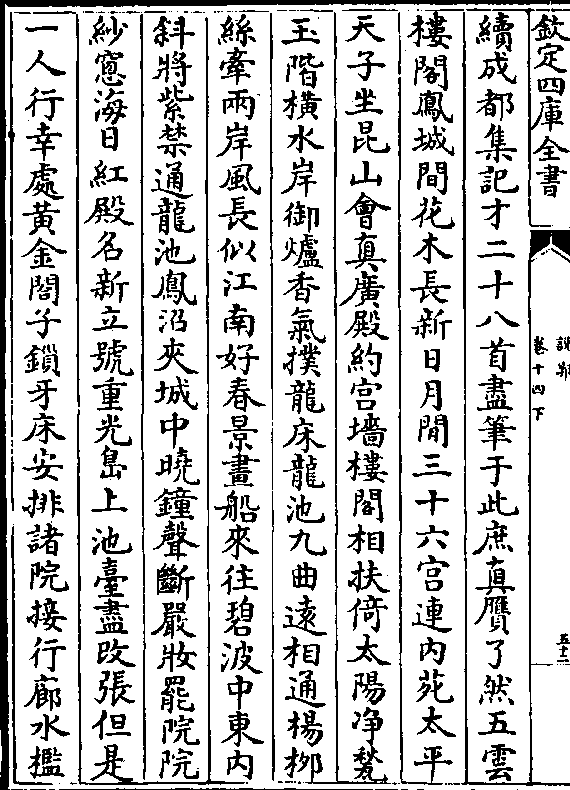 欽定四庫全書
說郛
卷十四下
五十二
續成都集記才二十八首盡筆于此庶真贗了然五雲
樓閣鳳城間花木長新日月閒三十六宫連内苑太平
天子坐昆山會真廣殿約宫墻樓閣相扶倚太陽净甃
玉階橫水岸御爐香氣撲龍床龍池九曲逺相通楊栁
絲牽兩岸風長似江南好春景畫船來往碧波中東内
斜將紫禁通龍池鳳沼夾城中曉鐘聲斷嚴妝罷院院
紗窻海日紅殿名新立號重光島上池臺盡改張但是
一人行幸處黄金閣子鎖牙床安排諸院接行廊水檻